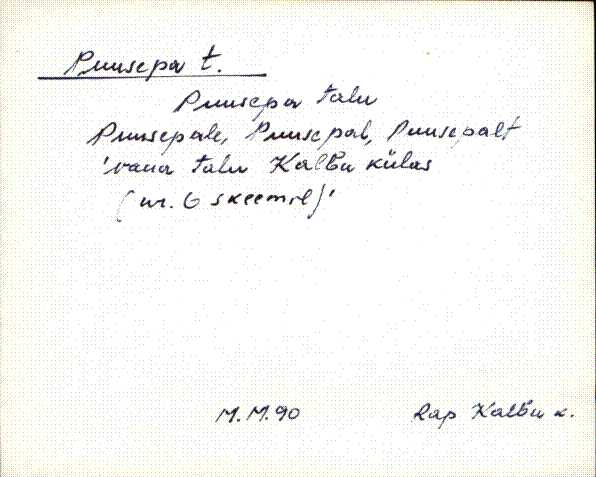 Puusepa t.
Puusepa talu
Puusepale, Puusepal, Puusepalt
'vana talu Kalbu külas
(nr. 6 skeemil)'
M.M.90 Rap Kalbu k.